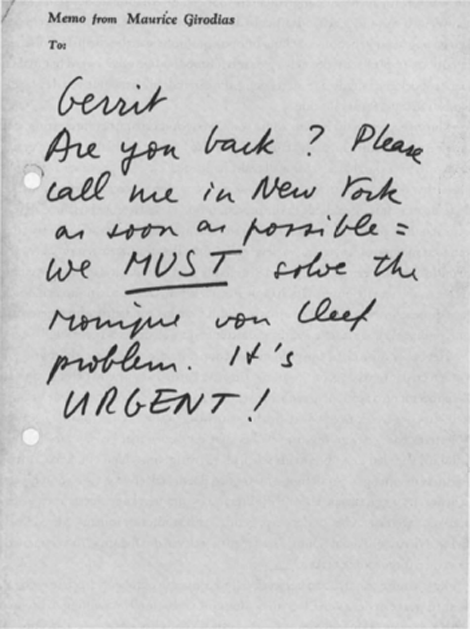 Memo from Maurice Girodias
To:
Gerrit
Are you back ? Please
call me in New York
as soon as possible =
we MUST solve the
Monique von Cleef
problem. It's
URGENT !